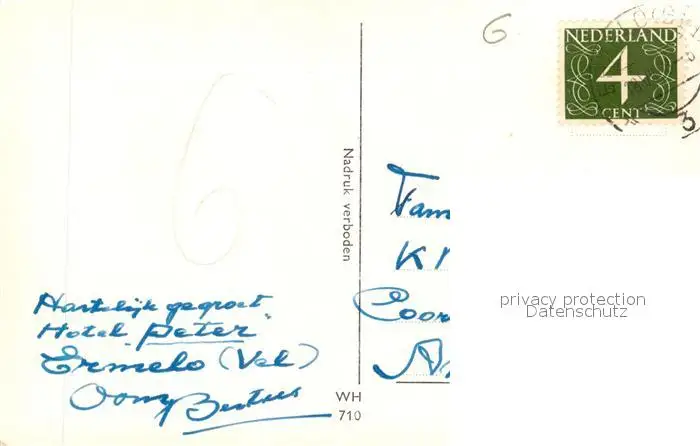 6
NEDERLAND
4
CENT
6
Nadruk verboden
Fam
Kl
Coor
privacy protection
Datenschutz
Hartelijk gegroet.
Hotel Peter
Ermelo (Vel)
Oom
WH
710